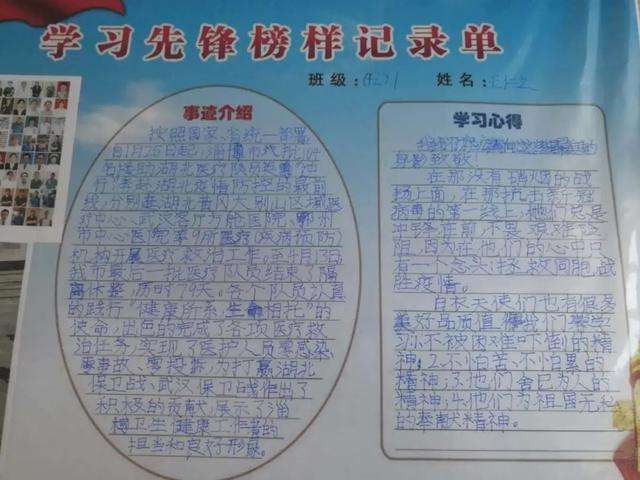 学习先锋榜样记录单
班级：(五)1 姓名：王一之
事迹介绍
按照国家、省统一部署
自1月25日起,淄博市先后派
名援助湖北医疗队员英勇逆
行,奔赴湖北疫情防控的最前
线,分别在湖北黄冈大别山区域医
疗中心、武汉客厅方舱医院、鄂州
市中心医院等9所医疗及疾病预防
机构开展医疗救治工作。至4月13日
我市最后一批医疗队员结束了隔
离休整,历时79天。各个队员认真
的践行“健康所系,生命相托”的
使命,出色的完成了各项医疗救
治任务,实现了医护人员零感染、
零事故、零投诉,为打赢湖北
保卫战、武汉保卫战作出了
积极的贡献,展示了淄
博卫生健康工作者的
担当和良好形象。
学习心得
身影致敬!
在那没有硝烟的战
场上面,在那抗击新冠
病毒的第一线上,他们总是
冲锋在前,不畏艰难险
阻,因为在他们的心中只
有一个念头:拯救同胞,战
胜疫情。
白衣天使们也有很多
美好品质值得我们学习:
习:1.不被困难吓倒的精
神;2.不怕苦、不怕累的
精神;3.他们舍己为人的
精神;4.他们为祖国无私
的奉献精神。